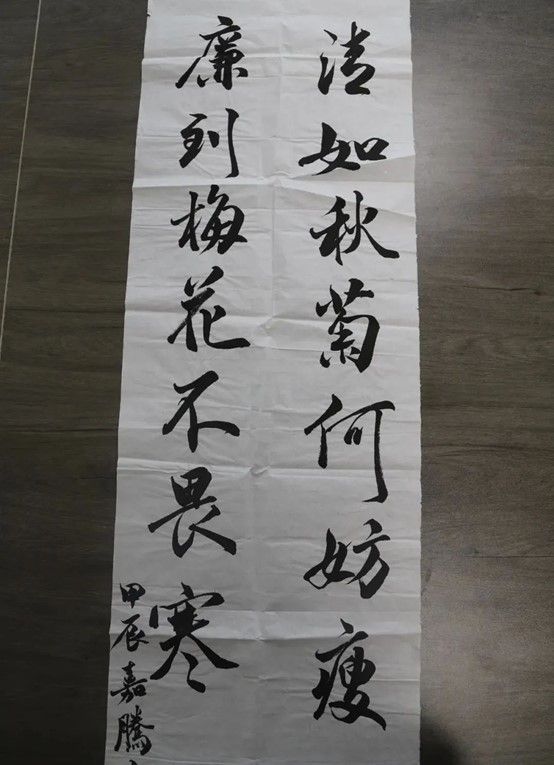 清如秋菊何妨瘦
廉到梅花不畏寒
甲辰嘉騰